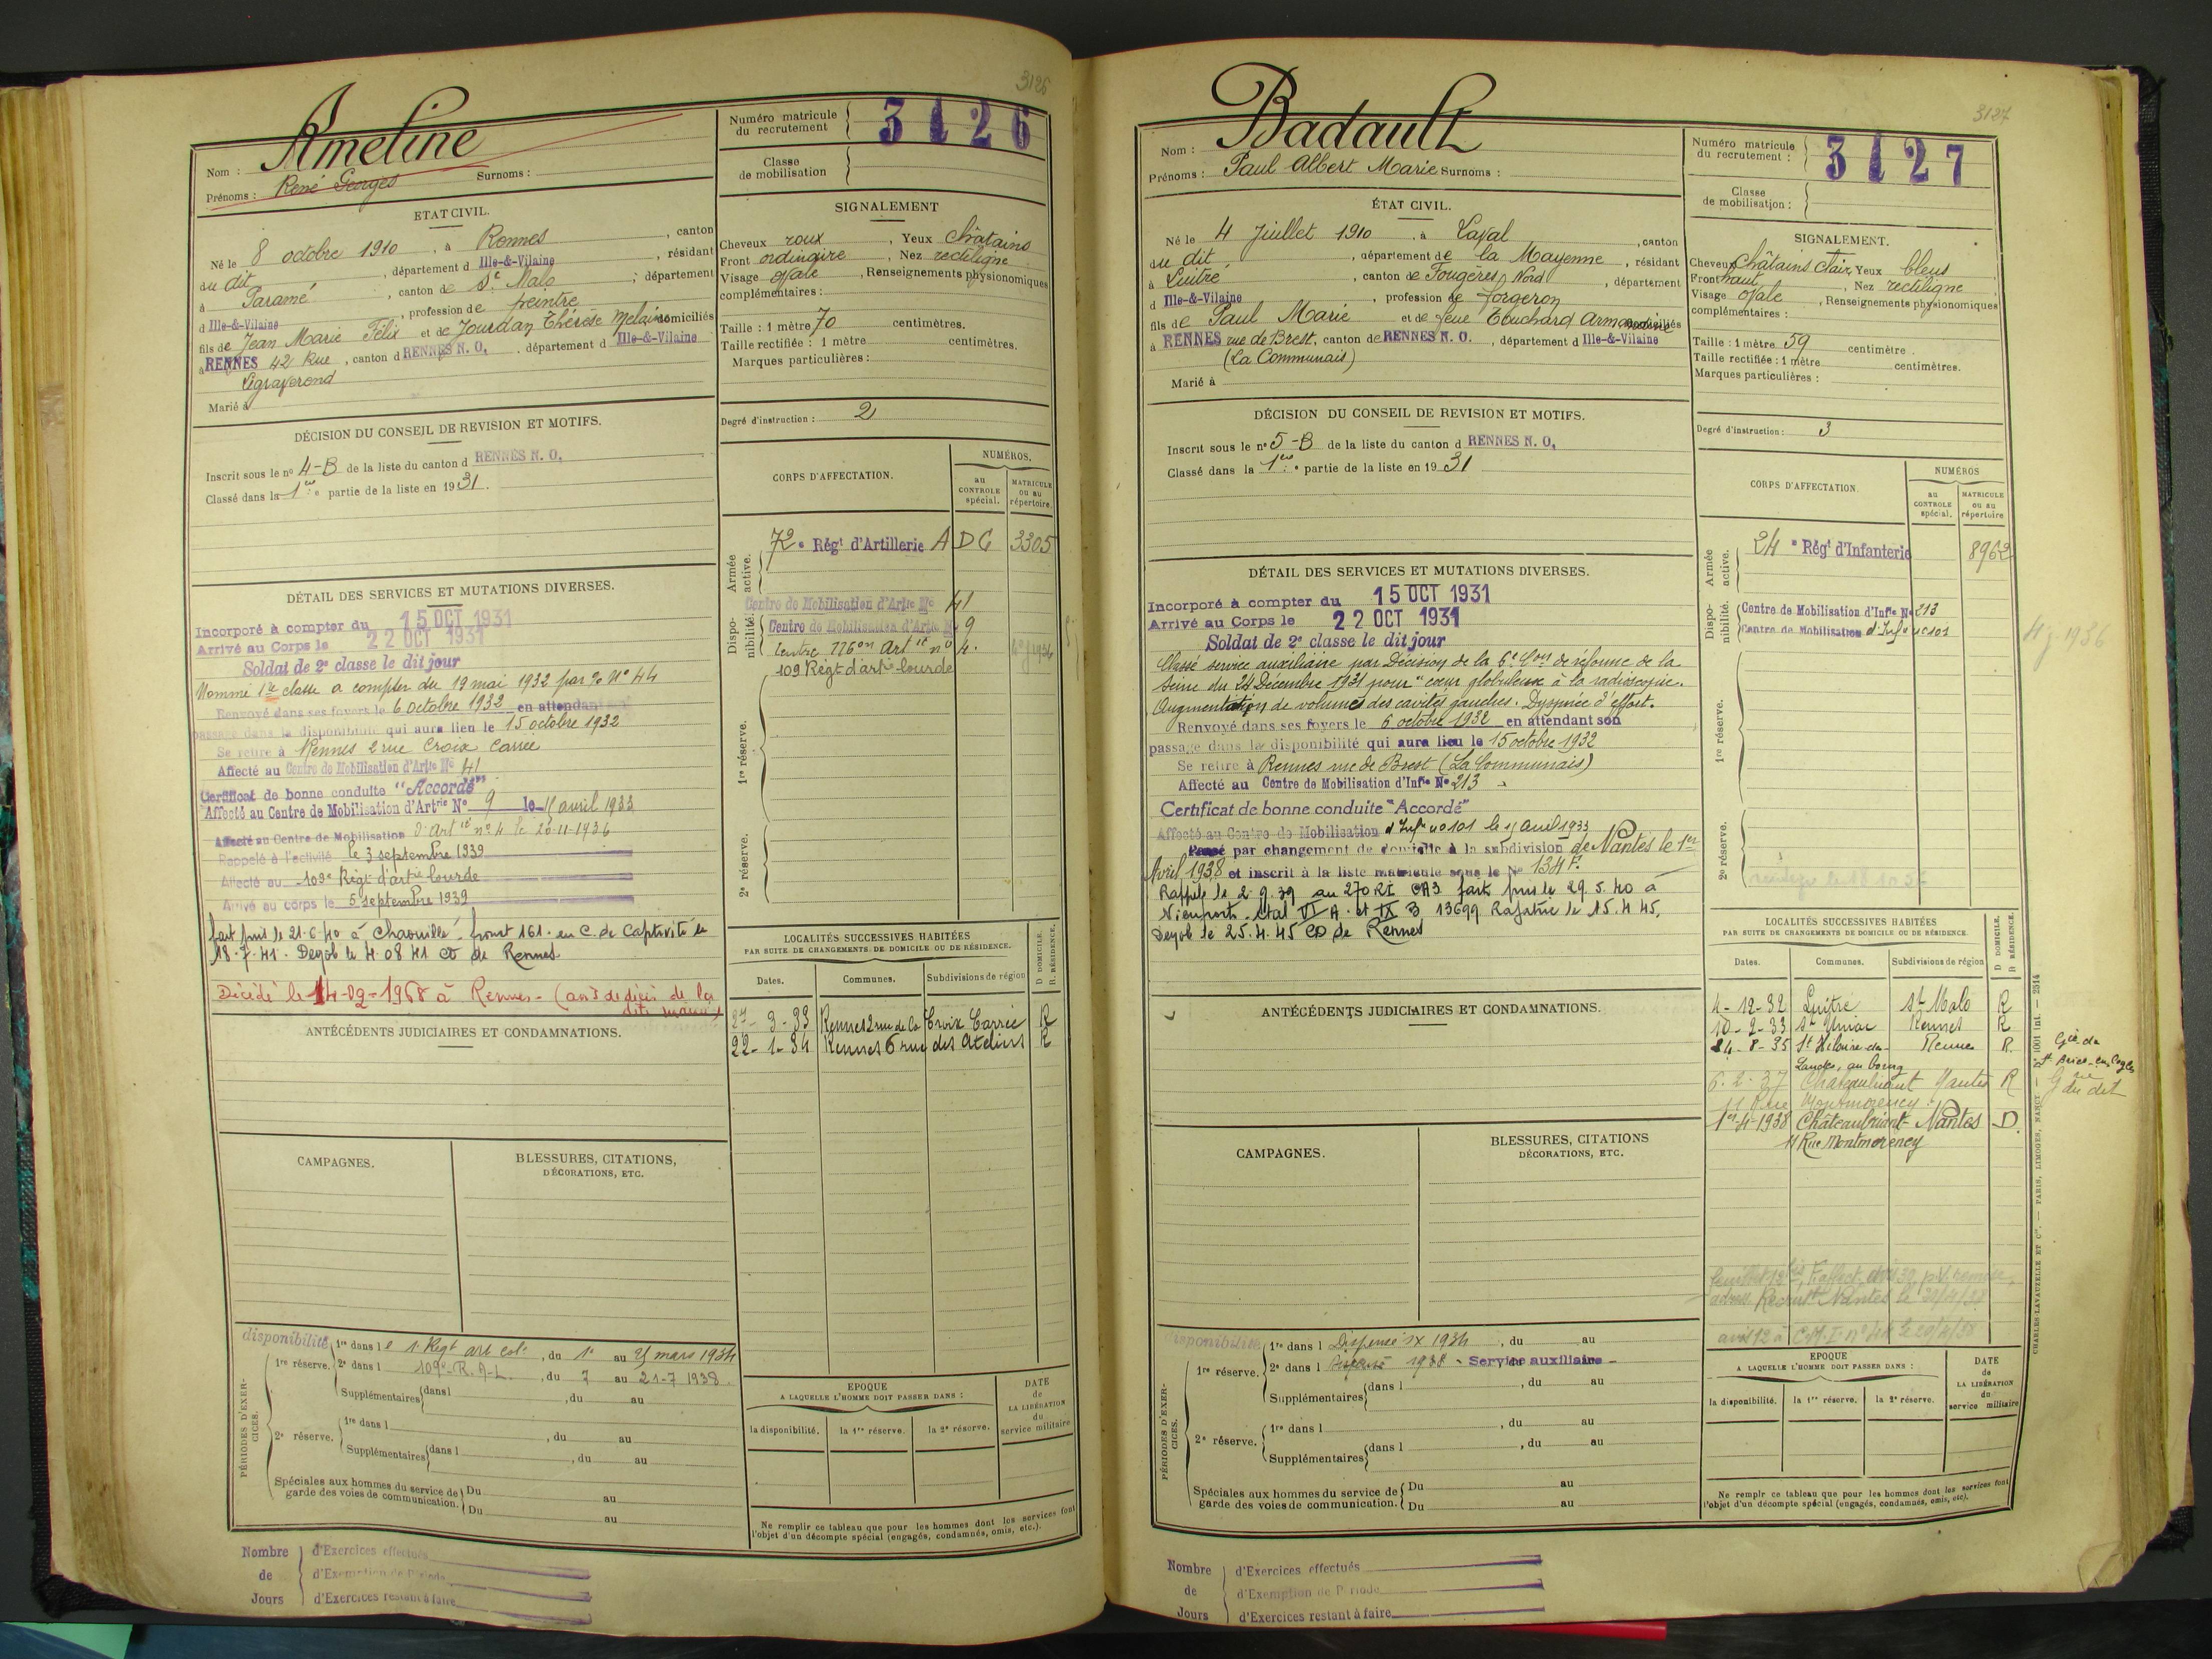 3126
Nom : Ameline
Prénoms : René Georges Surnoms :
Numéro matricule du recrutement 3126
Classe de mobilisation
ETAT CIVIL.
Né le 8 octobre 1910, à Rennes, canton
du dit, département d Ille-&-Vilaine, résidant
à Paramé, canton de St Malo ; département
d Ille-&-Vilaine, profession de peintre
fils de Jean Marie Félix et de Jourdan Thérèse Melaine domiciliés
à RENNES 42 Rue, canton d RENNES N. O., département d Ille-&-Vilaine
Legraverend
Marié à
SIGNALEMENT
Cheveux roux, Yeux châtains
Front ordinaire, Nez rectiligne
Visage ovale, Renseignements physionomiques
complémentaires :
Taille : 1 mètre 70 centimètres.
Taille rectifiée : 1 mètre centimètres.
Marques particulières :
Degré d'instruction : 2
DÉCISION DU CONSEIL DE REVISION ET MOTIFS.
Inscrit sous le no 4-B de la liste du canton d RENNES N. O.
Classé dans la 1ere partie de la liste en 1931.
CORPS D'AFFECTATION.
NUMÉROS.
au CONTROLE spécial.
MATRICULE ou au répertoire.
Armée active.
72e Régt d'Artillerie A D C 3305
Disponibilité.
Centre de Mobilisation d'Artie No 41
Centre de Mobilisation d'Artie No 9
109 Régt d'artie lourde
1re réserve.
2e réserve.
DÉTAIL DES SERVICES ET MUTATIONS DIVERSES.
Incorporé à compter du 15 OCT 1931
Arrivé au Corps le 22 OCT 1931
Soldat de 2e classe le dit jour
Nommé 1re classe a compter du 19 mai 1932 par % No 44
Renvoyé dans ses foyers le 6 octobre 1932 en attendant
passage dans la disponibilité qui aura lieu le 15 octobre 1932
Se retire à Rennes 2 rue Croix Carrée
Affecté au Centre de Mobilisation d'Artie No 41
Certificat de bonne conduite "Accordé"
Affecté au Centre de Mobilisation d'Artrie No 9 le avril 1933
Affecté au Centre de Mobilisation d'Artie no 4 le 20-11-1936
Rappelé à l'activité le 3 septembre 1939
Affecté au 109e Régt d'artie lourde
Arrivé au corps le 5 septembre 1939
fait pris le 21-6-40 à Chaouilley, front 161. en C. de Captivité le
18-7-41. Degob le 4-08 41 CD de Rennes
Décédé le 14-02-1968 à Rennes - (avis de décès de la
dite mairie)
ANTÉCÉDENTS JUDICIAIRES ET CONDAMNATIONS.
LOCALITÉS SUCCESSIVES HABITÉES
PAR SUITE DE CHANGEMENTS DE DOMICILE OU DE RÉSIDENCE.
Dates. Communes. Subdivisions de région D DOMICILE. R. RÉSIDENCE.
27-3-33 Rennes 2 rue de la Croix Carrée R
22-1-34 Rennes 6 rue des Ateliers R
CAMPAGNES.
BLESSURES, CITATIONS, DÉCORATIONS, ETC.
PÉRIODES D'EXERCICES.
disponibilité 1re dans le 1 Régt art col., du 1e au 25 mars 1934
1re réserve. 2e dans l 109e R.A.L., du 7 au 21-7 1938.
Supplémentaires dans l, du au
2e réserve. 1re dans l, du au
Supplémentaires dans l, du au
Spéciales aux hommes du service de garde des voies de communication. Du au
Du au
EPOQUE
A LAQUELLE L'HOMME DOIT PASSER DANS :
la disponibilité. la 1re réserve. la 2e réserve.
DATE de LA LIBÉRATION du service militaire
Ne remplir ce tableau que pour les hommes dont les services font
l'objet d'un décompte spécial (engagés, condamnés, omis, etc.).
Nombre de Jours
d'Exercices effectués
d'Exemption de Période
d'Exercices restant à faire
3127
Nom : Badault
Prénoms : Paul Albert Marie Surnoms :
Numéro matricule du recrutement : 3127
Classe de mobilisation :
ÉTAT CIVIL.
Né le 4 Juillet 1910, à Laval, canton
du dit, département de la Mayenne, résidant
à Luitré, canton de Fougères Nord, département
d Ille-&-Vilaine, profession de forgeron
fils de Paul Marie et de feue Touchard Armandine domiciliés
à RENNES rue de Brest, canton de RENNES N. O., département d Ille-&-Vilaine
(La Communais)
Marié à
SIGNALEMENT.
Cheveux châtains clair, Yeux bleus
Front haut, Nez rectiligne
Visage ovale, Renseignements physionomiques
complémentaires :
Taille : 1 mètre 59 centimètre.
Taille rectifiée : 1 mètre centimètres.
Marques particulières :
Degré d'instruction : 3
DÉCISION DU CONSEIL DE REVISION ET MOTIFS.
Inscrit sous le no 5-B de la liste du canton d RENNES N. O.
Classé dans la 1ere partie de la liste en 1931
CORPS D'AFFECTATION.
NUMÉROS
au CONTROLE spécial.
MATRICULE ou au répertoire
Armée active.
24e Régt d'Infanterie 8962
Disponibilité.
Centre de Mobilisation d'Infie No 213
Centre de Mobilisation d'Infie no 101
1re réserve.
2e réserve.
DÉTAIL DES SERVICES ET MUTATIONS DIVERSES.
Incorporé à compter du 15 OCT 1931
Arrivé au Corps le 22 OCT 1931
Soldat de 2e classe le dit jour
Classé service auxiliaire par Décision de la 6e Con de réforme de la
Seine du 24 Décembre 1931 pour "cœur globuleux à la radioscopie.
Augmentation de volumes des cavités gauches. Dyspnée d'effort.
Renvoyé dans ses foyers le 6 octobre 1932 en attendant son
passage dans la disponibilité qui aura lieu le 15 octobre 1932
Se retire à Rennes rue de Brest (La Communais)
Affecté au Centre de Mobilisation d'Infie No 213
Certificat de bonne conduite "Accordé"
Affecté au Centre de Mobilisation d'Infie no 101 le avril 1933
Passé par changement de domicile à la subdivision de Nantes le 1er
Avril 1938 et inscrit à la liste matricule sous le No 134 F.
Rappelé le 2-9.39 au 270 RI CA3 fait pris le 29.5.40 à
Nieuport. Stal VI A. et IX B 13699 Rapatrié le 15.4 45.
Degob le 25.4.45 CD de Rennes
ANTÉCÉDENTS JUDICIAIRES ET CONDAMNATIONS.
LOCALITÉS SUCCESSIVES HABITÉES
PAR SUITE DE CHANGEMENTS DE DOMICILE OU DE RÉSIDENCE.
Dates. Communes. Subdivisions de région D DOMICILE. R RÉSIDENCE.
4-12-32 Luitré St Malo R
10-2-33 St Rennes R
24-8-35 St Hilaire des Rennes R.
Landes, au bourg
6.2.37 Chateaubriant Nantes R
11 Rue Montmorency
1er-4-1938 Châteaubriant Nantes D.
11 Rue Montmorency
Gie de
St Brice-en-Cogles
Gie du dit
CAMPAGNES.
BLESSURES, CITATIONS DÉCORATIONS, ETC.
PÉRIODES D'EXERCICES.
disponibilité 1re dans l Dispensé IX 1934, du au
1re réserve. 2e dans l Dispensé 1938 - Service auxiliaire -
Supplémentaires dans l, du au
2e réserve. 1re dans l, du au
Supplémentaires dans l, du au
Spéciales aux hommes du service de garde des voies de communication. Du au
Du au
EPOQUE
A LAQUELLE L'HOMME DOIT PASSER DANS :
la disponibilité. la 1re réserve. la 2e réserve.
DATE de LA LIBÉRATION du service militaire
Ne remplir ce tableau que pour les hommes dont les services font
l'objet d'un décompte spécial (engagés, condamnés, omis, etc).
CHARLES-LAVAUZELLE ET Cie. — PARIS, LIMOGES, NANCY — No 1001 int. — 2514
Nombre de Jours
d'Exercices effectués
d'Exemption de Période
d'Exercices restant à faire